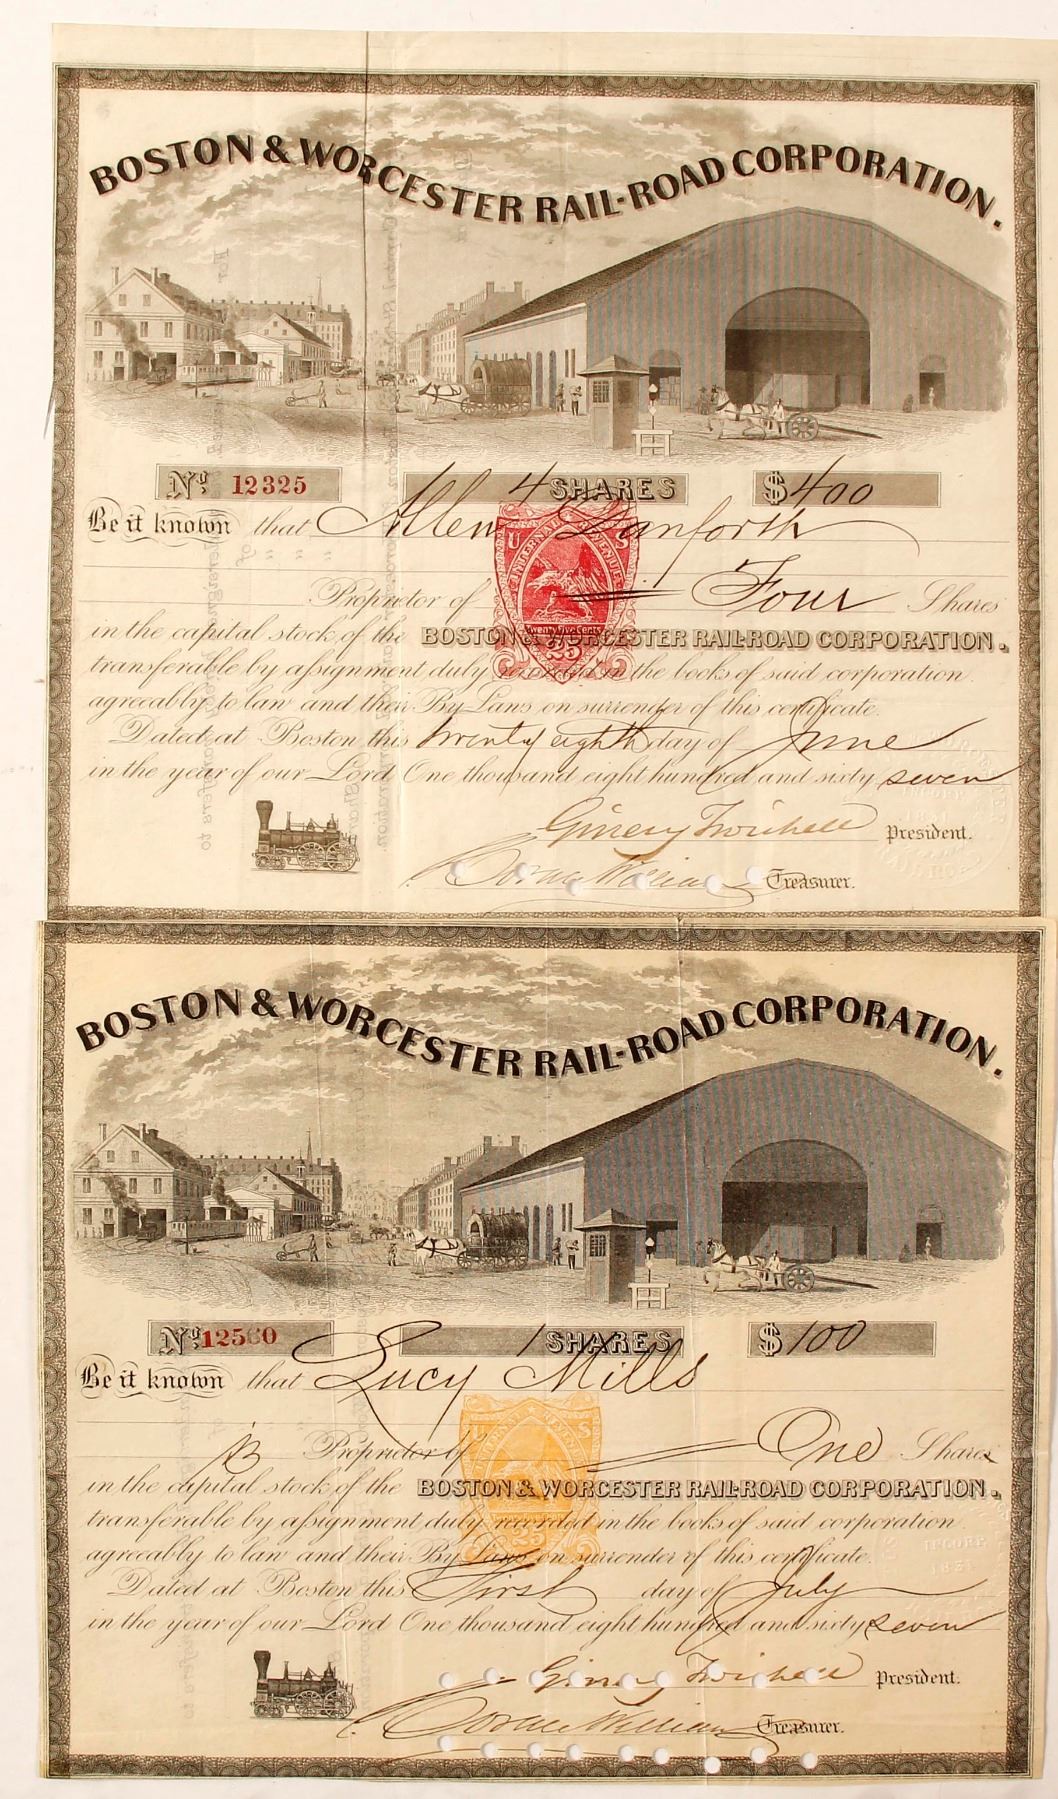 BOSTON & WORCESTER RAIL-ROAD CORPORATION.
No. 12325 4 SHARES $400
Be it known that Allen Danforth
U S
INTERNAL REVENUE
Proprietor of Four Shares
Twenty Five Cents
in the capital stock of the BOSTON & WORCESTER RAIL-ROAD CORPORATION.
25
transferable by assignment duly recorded in the books of said corporation
agreeably to law and their By Laws on surrender of this certificate.
Dated at Boston this twenty eighth day of June
in the year of our Lord One thousand eight hundred and sixty seven
Ginery Twichell President.
Treasurer.
BOSTON & WORCESTER RAIL-ROAD CORPORATION.
No. 12560 1 SHARES $100
Be it known that Lucy Mills
U S
Proprietor of One Share
in the capital stock of the BOSTON & WORCESTER RAIL-ROAD CORPORATION.
transferable by assignment duly recorded in the books of said corporation
25
agreeably to law and their By Laws on surrender of this certificate.
Dated at Boston this First day of July
in the year of our Lord One thousand eight hundred and sixty seven
Ginery Twichell President.
Treasurer.